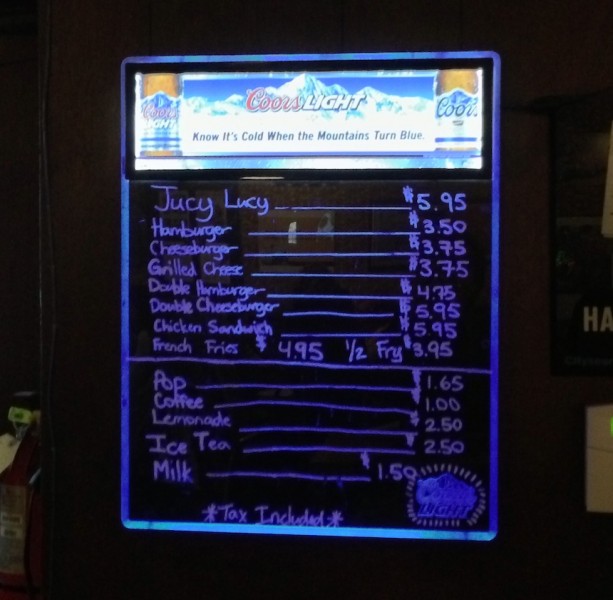 Coors LIGHT
Know It's Cold When the Mountains Turn Blue.
Jucy Lucy $5.95
Hamburger $3.50
Cheeseburger $3.75
Grilled Cheese $3.75
Double Hamburger $4.75
Double Cheeseburger $5.95
Chicken Sandwich $5.95
French Fries $4.95 1/2 Fry $3.95
Pop $1.65
Coffee $1.00
Lemonade $2.50
Ice Tea $2.50
Milk $1.50
LIGHT
*Tax Included*
HA